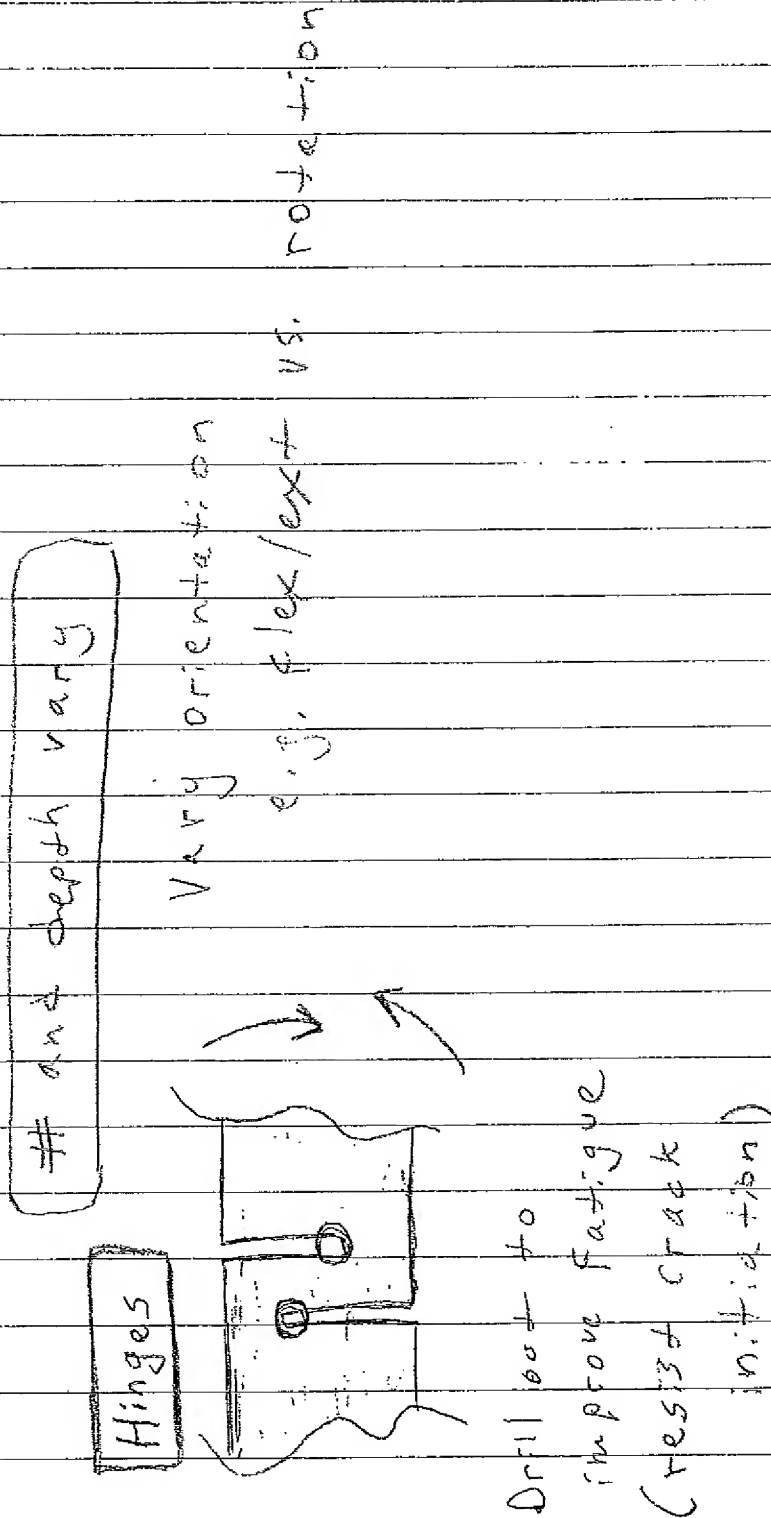 # and depth vary
Hinges
Vary orientation
e.g. flex/ext vs. rotation
Drill out to
improve fatigue
(resist crack
initiation)